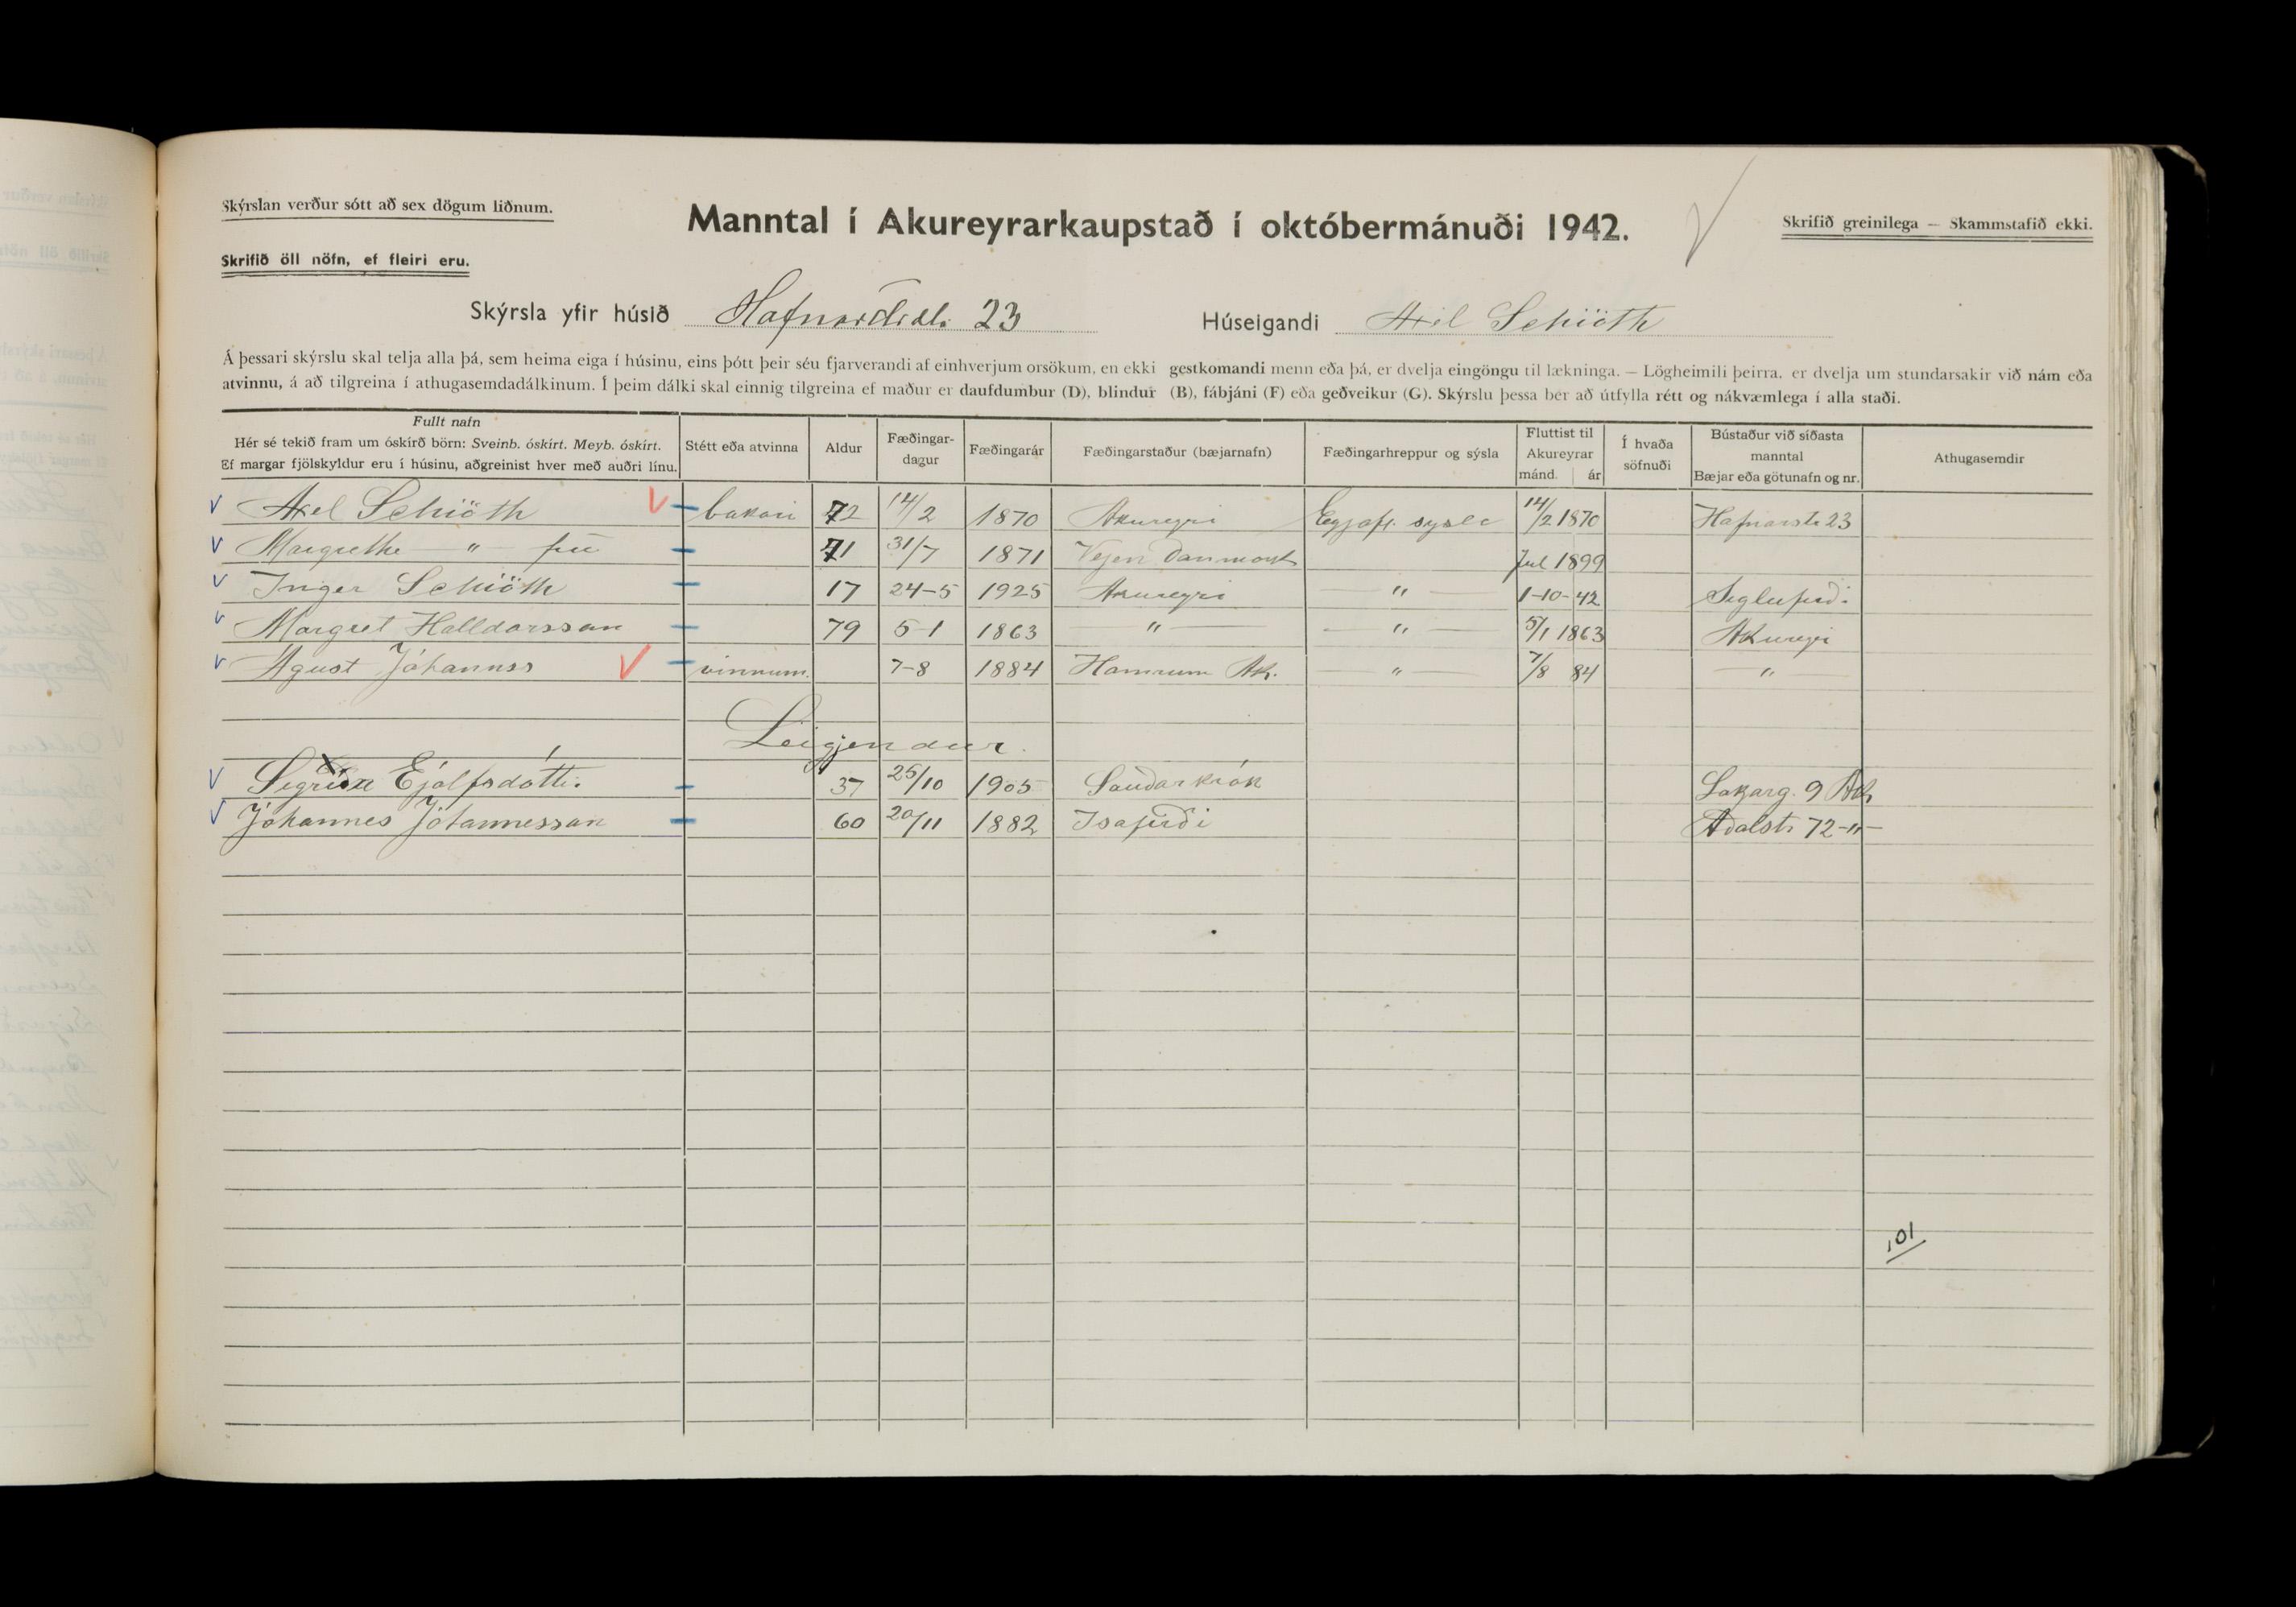 Skýrslan verður sótt að sex dögum liðnum.
Manntal í Akureyrarkaupstað í októbermánuði 1942.
Skrifið greinilega — Skammstafið ekki.
Skrifið öll nöfn, ef fleiri eru.
Skýrsla yfir húsið 23
Húseigandi Axel Schiöth
Á þessari skýrslu skal telja alla þá, sem heima eiga í húsinu, eins þótt þeir séu fjarverandi af einhverjum orsökum, en ekki gestkomandi menn eða þá, er dvelja eingöngu til lækninga. — Lögheimili þeirra, er dvelja um stundarsakir við nám eða
atvinnu, á að tilgreina í athugasemdadálkinum. Í þeim dálki skal einnig tilgreina ef maður er daufdumbur (D), blindur (B), fábjáni (F) eða geðveikur (G). Skýrslu þessa ber að útfylla rétt og nákvæmlega í alla staði.
Fullt nafn
Hér sé tekið fram um óskírð börn: Sveinb. óskírt. Meyb. óskírt.
Ef margar fjölskyldur eru í húsinu, aðgreinist hver með auðri línu.
Stétt eða atvinna
Aldur
Fæðingar-
dagur
Fæðingarár
Fæðingarstaður (bæjarnafn)
Fæðingarhreppur og sýsla
Fluttist til
Akureyrar
mánd. ár
Í hvaða
söfnuði
Bústaður við síðasta
manntal
Bæjar eða götunafn og nr.
Athugasemdir
Axel Schiöth bakari 72 14/2 1870 Akureyri Eyjafj. sysla 14/2 1870 Hafnarstr 23
Margrethe " frú 71 31/7 1871 Vejen Danmark Jul 1899
Inger Schiöth 17 24-5 1925 Akureyri " 1-10-42 Siglufirði
Margret Halldorsson 79 5-1 1863 " " 5/1 1863 Akureyri
Águst Jóhannss vinnum. 7-8 1884 Hamrum Ak. " 7/8 84 "
Leigjendur.
Ejólfsdóttir 37 25/10 1905 Saudarkrók 9 Ak
Jóhannes Jóhannesson 60 20/11 1882 Isafirði Aðalstr 72 -"-
101